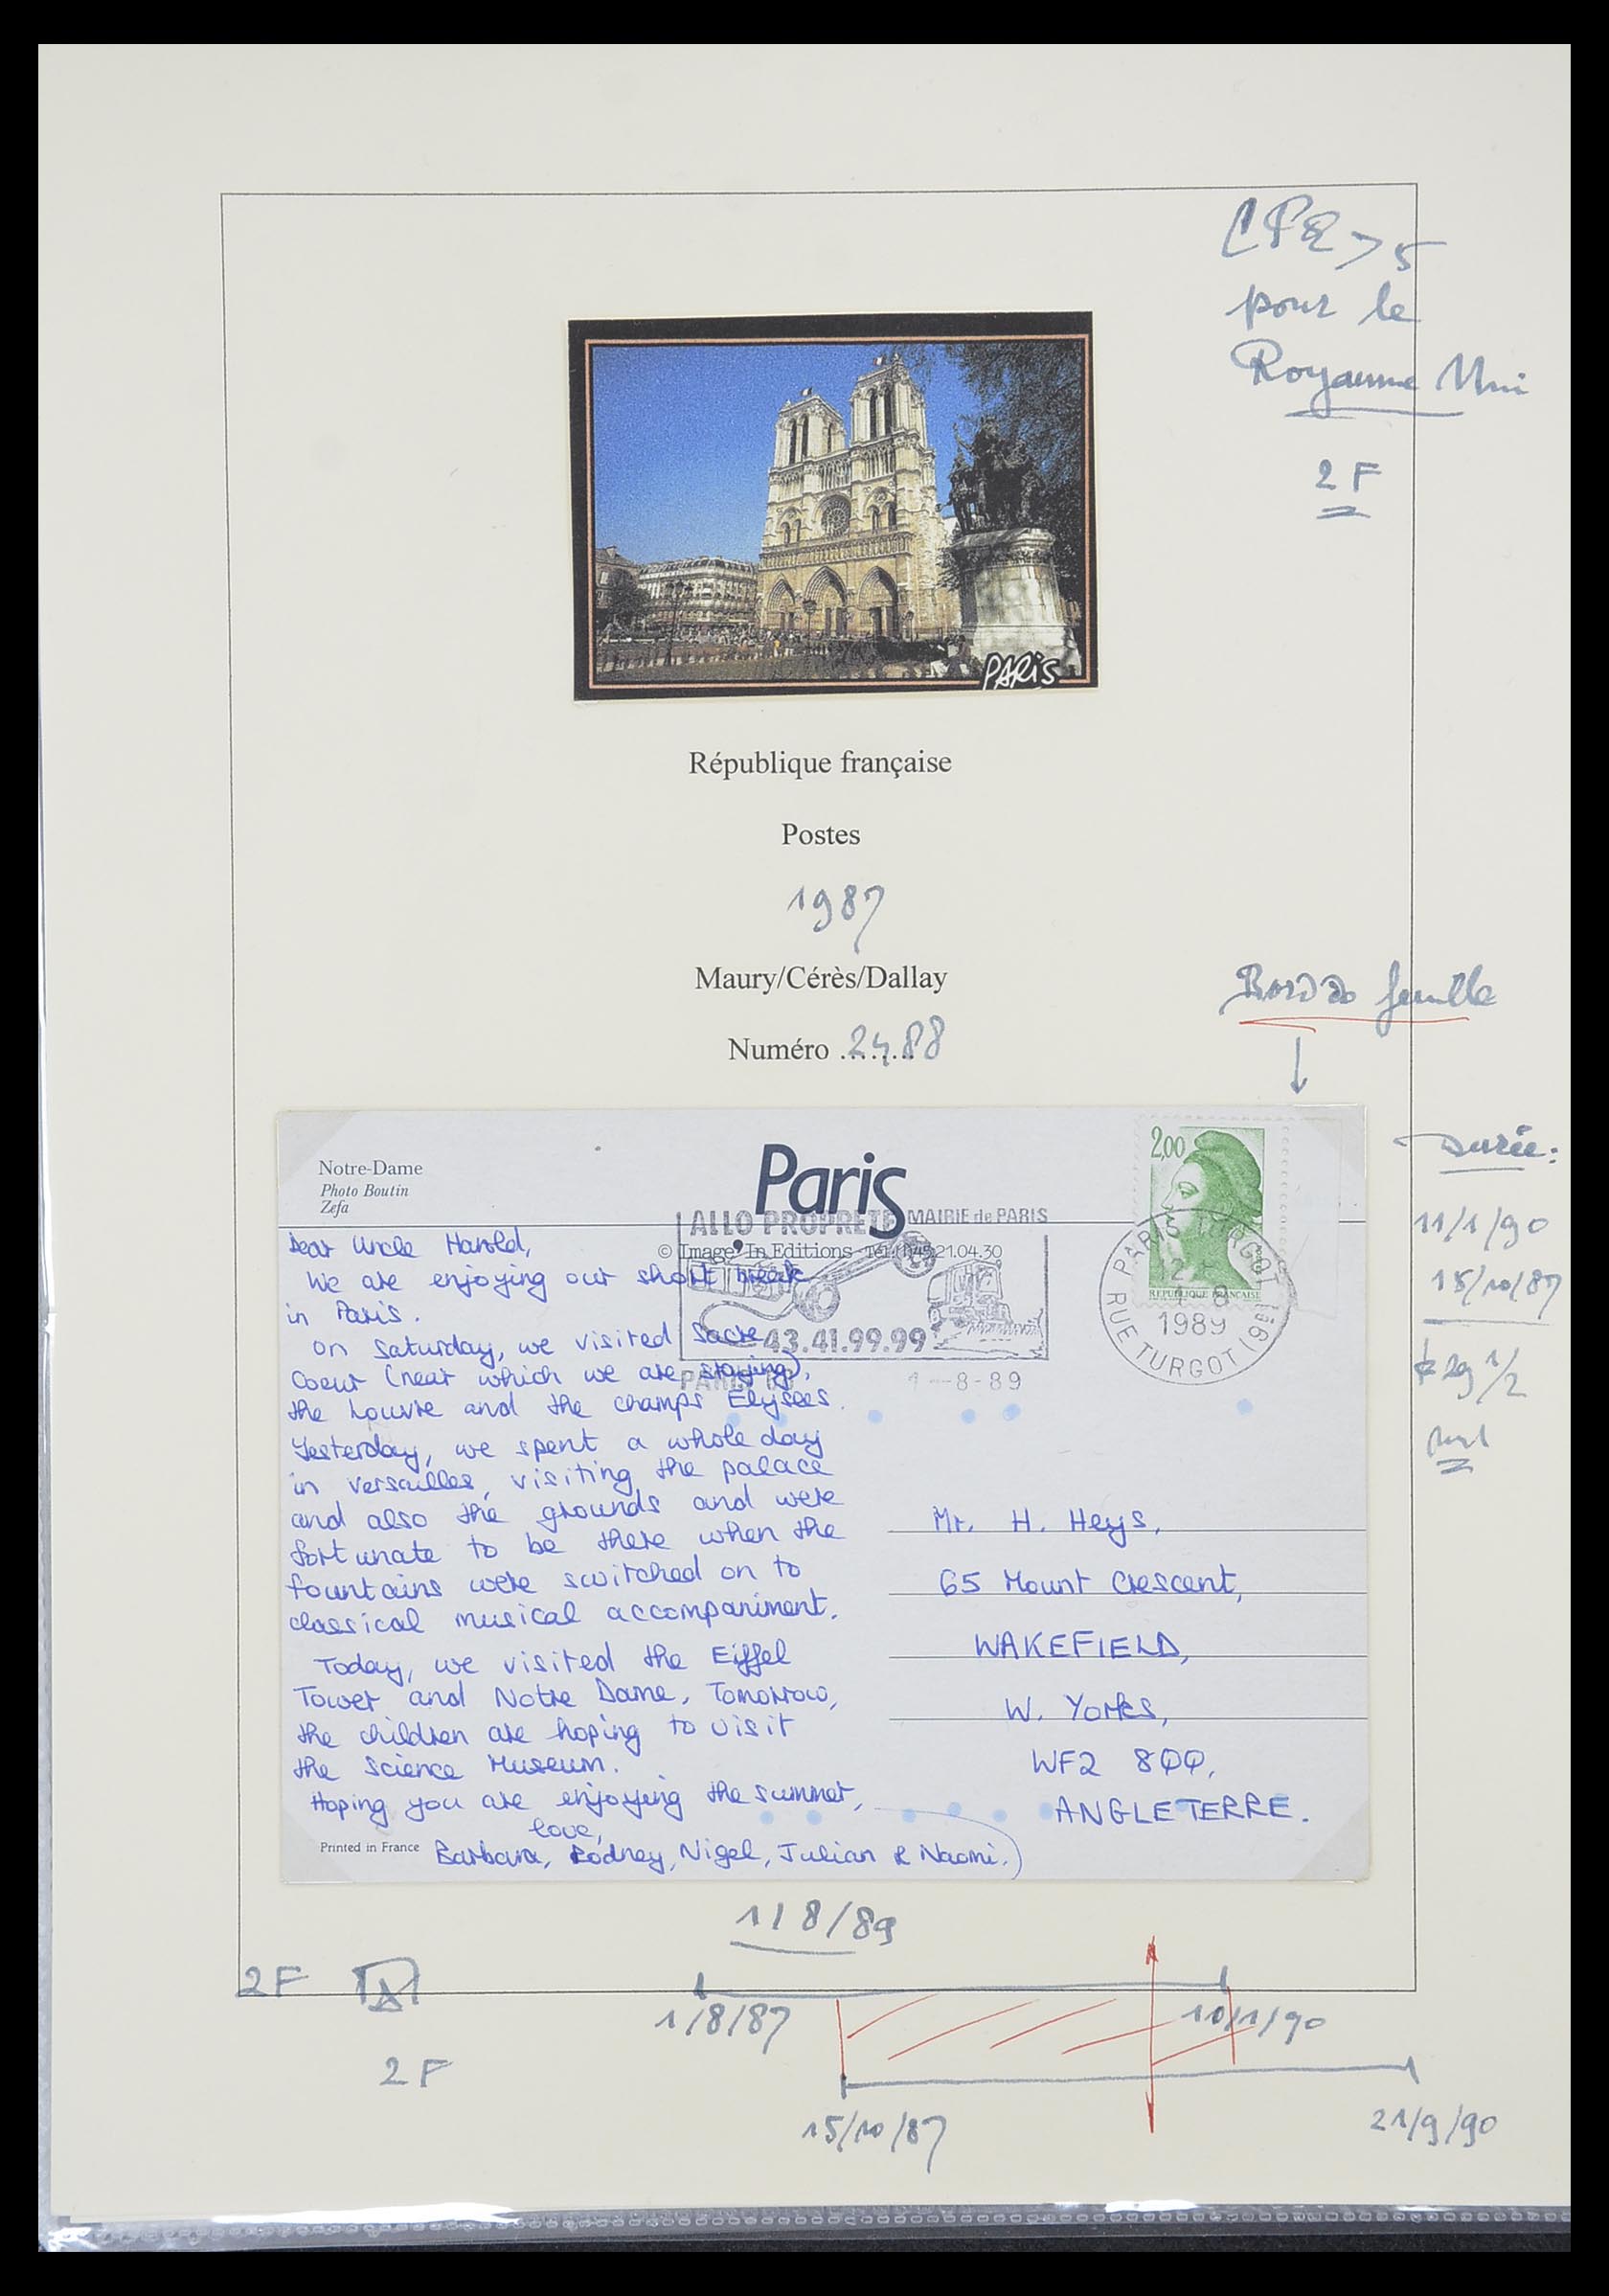 CPE > 5
pour le
Royaume Uni
2 F
PARIS
République française
Postes
1987
Maury/Cérès/Dallay
Numéro ........ 2488
Bord de feuille
Notre-Dame
Photo Boutin
Zefa
Paris
ALLO PROPRETE MAIRIE de PARIS
© Image'In Editions - Tél. (1) 45.21.04.30
43.41.99.99
PARIS
1--8-89
2,00
REPUBLIQUE FRANCAISE
PARIS TURGOT
1 8
1989
RUE TURGOT (9e)
Dear Uncle Harold,
We are enjoying our short break
in Paris.
On Saturday, we visited Sacre
Coeur (near which we are staying),
the Louvre and the Champs Elysees.
Yesterday, we spent a whole day
in Versailles, visiting the palace
and also the grounds and were
fortunate to be there when the
fountains were switched on to
classical musical accompaniment.
Today, we visited the Eiffel
Tower and Notre Dame. Tomorrow,
the children are hoping to visit
the Science Museum.
Hoping you are enjoying the summer,
love,
Barbara, Rodney, Nigel, Julian & Naomi.
Printed in France
Mr. H. Heys,
65 Mount Crescent,
WAKEFIELD,
W. Yorks,
WF2 8QQ,
ANGLETERRE.
Durée:
11/1/90
15/10/87
29 1/2
1/8/89
2F
1/8/87
10/1/90
2F
15/10/87
21/9/90